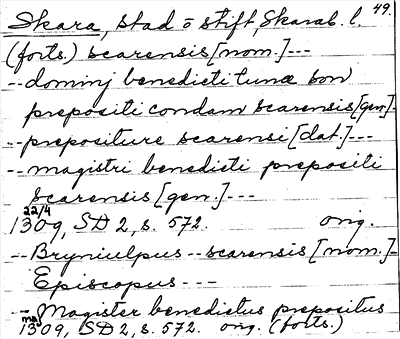 49.
Skara, stad o stift, Skarab. l.
(forts.) scarensis [nom.] ---
-- dominj benedicti tunæ bon
prepositi condam scarensis [gen.] -
-- prepositure scarensi [dat.] ---
-- magistri benedicti prepositi
scarensis [gen.] ---
22/4
1309, SD 2, s. 572. orig.
-- Bryniulpus -- scarensis [nom.] -
Episcopus ---
-- Magister benedictus prepositus
1309, SD 2, s. 572. orig. (forts.)